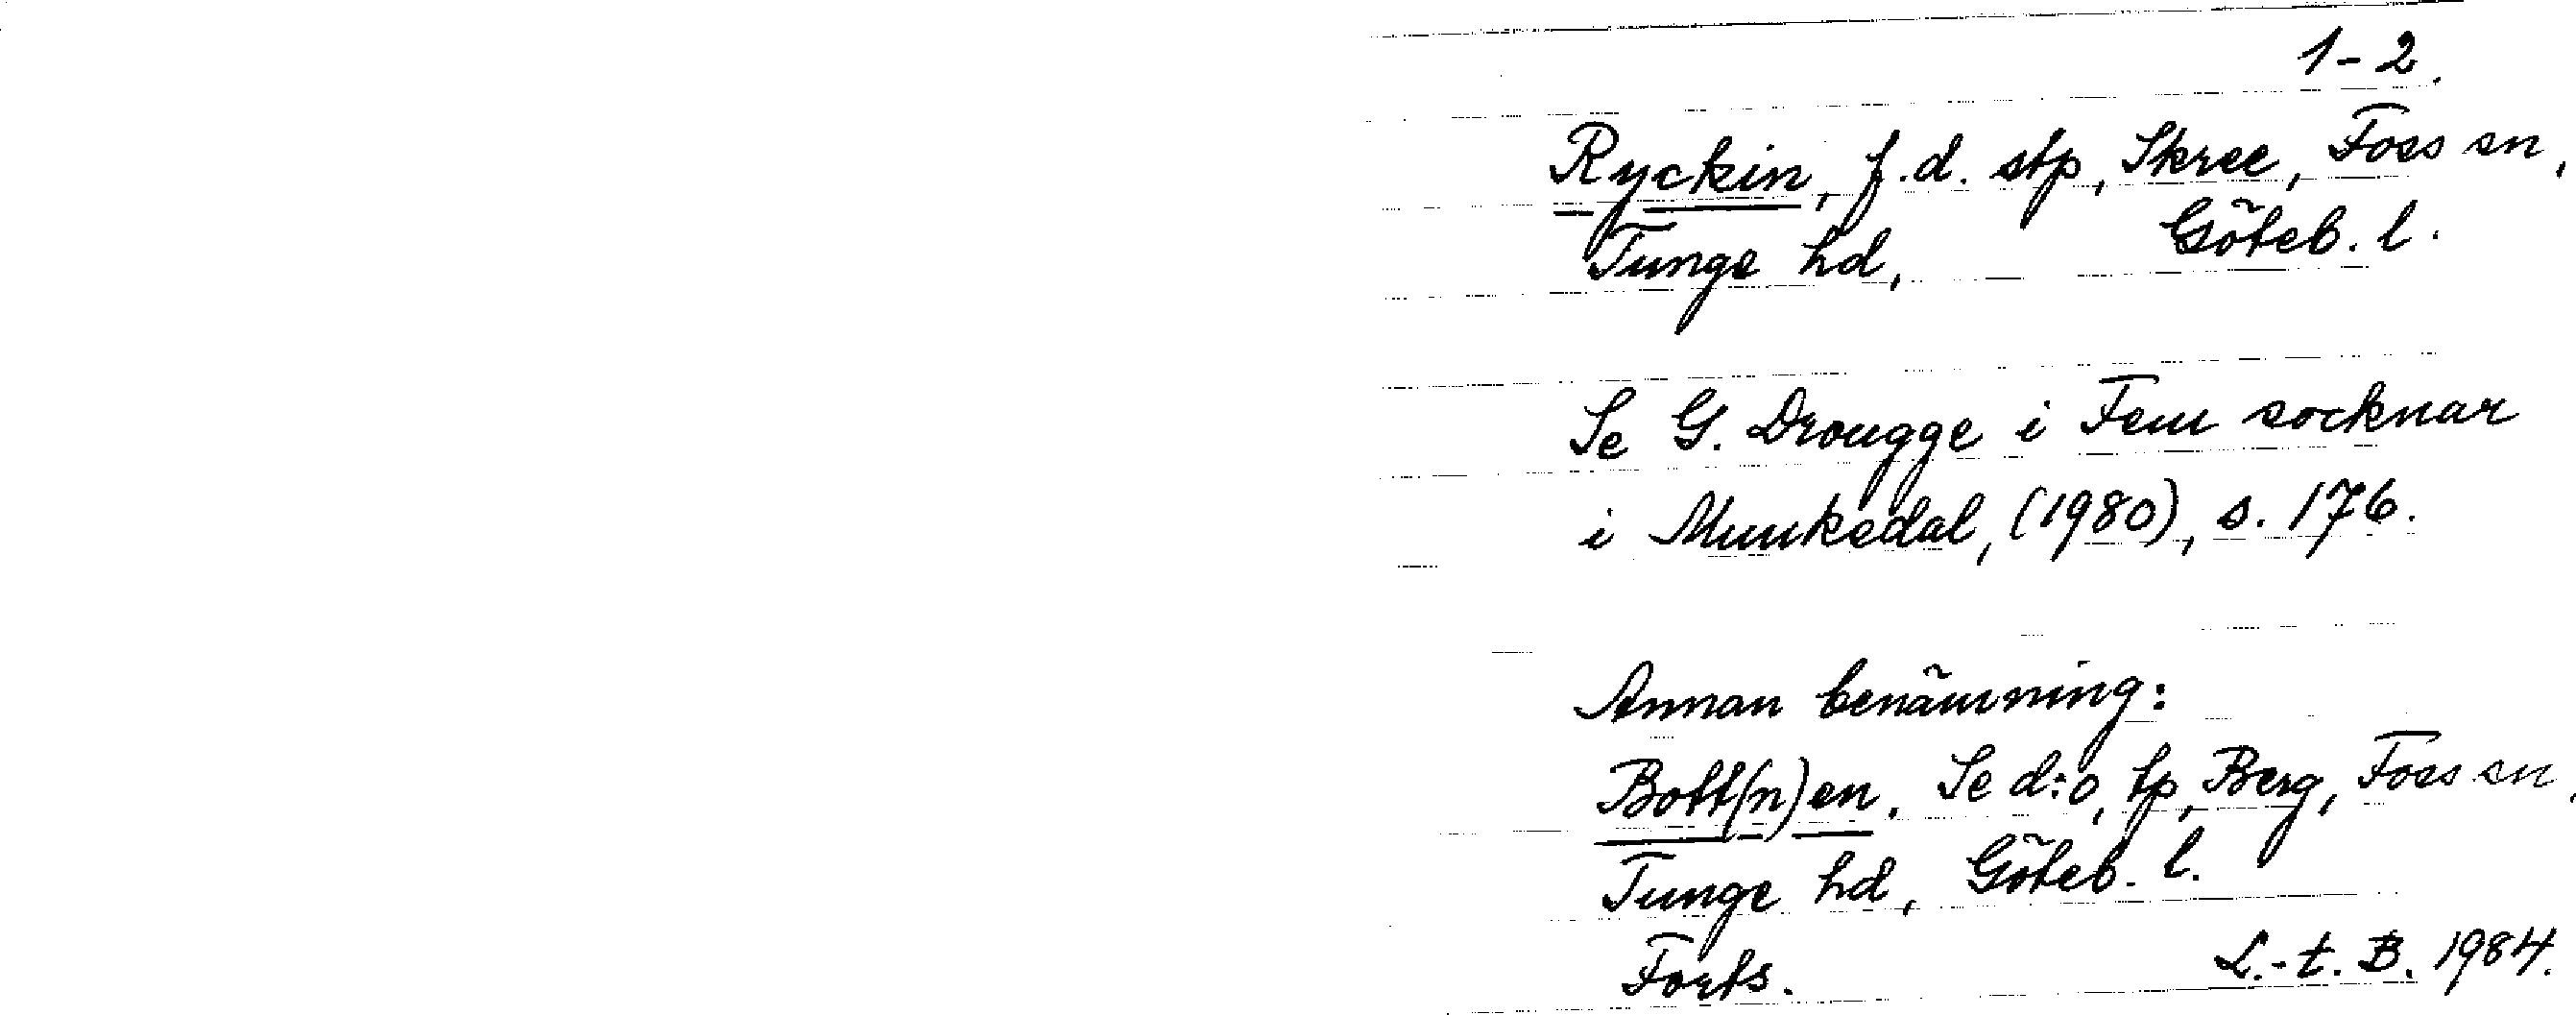 1-2.
Ryckin, f.d. stp, Skree, Foss sn,
Tunge hd, Göteb. l.
Se G. Drougge i Fem socknar
i Munkedal, (1980), s. 176.
Annan benämning:
Bott(n)en. Se d:o, tp, Berg, Foss sn,
Tunge hd, Göteb. l.
Forts. L.-t. B. 1984.